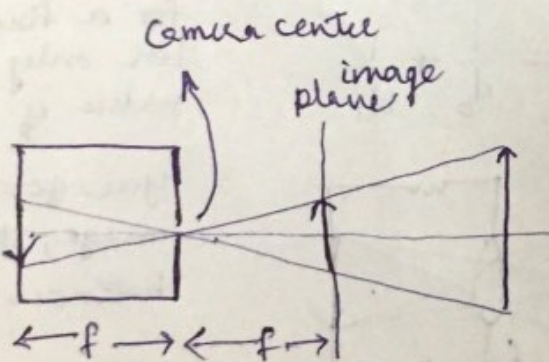 Camera centre
image
plane
f
f